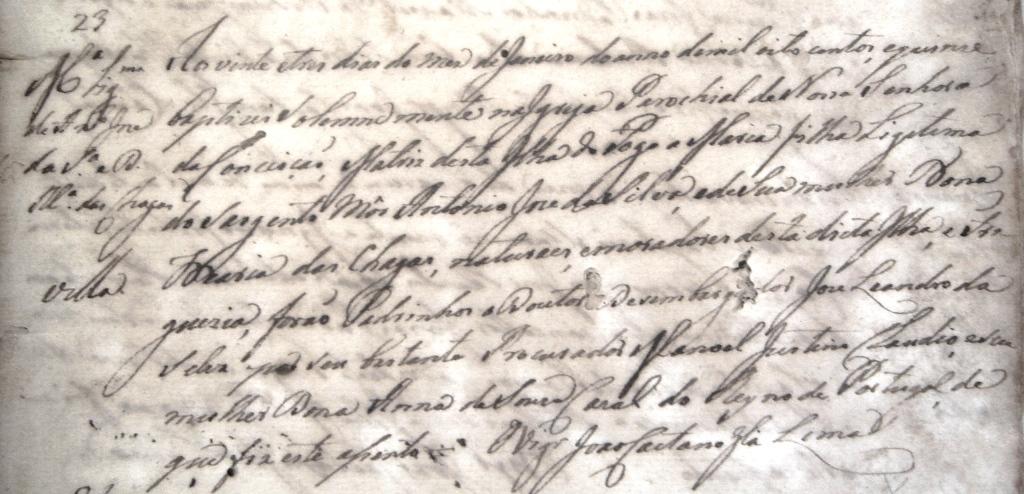 23
Mª
fig
de Antº Jose
da Sª e D.
Mª das Chagas
villa
Aos vinte etres dias do mes de Janeiro doanno demil eito centos, equinze
baptizei Solemnemente na Igreja Parochial de Nossa Senhora
da Conceição, Matriz desta Ilha do Fogo a Maria filha Ligetima
do Sargento Mór Antonio Jose da Silva, edeSua mulher Dona
Maria das Chagas, naturaes, emoradores desta dicta Ilha, e Fre
guezia, forão Padrinhos o Doutor Desembargador Jose Leandro da
Silva por seu bastante Procurador Manoel Justino Claudio, esua
mulher Dona Anna da Souza Cabral do Reyno de Portugal, de
que fiz este asento O Vigrº Joao Caetano Lima